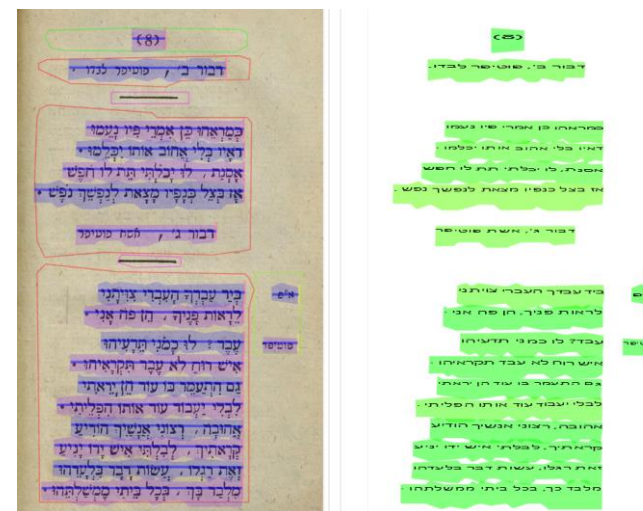 (8)
דבור ב', פוטיפר לבדו.
כְּמַרְאֵהוּ כֵּן אִמְרֵי פִּיו נָעֵמוּ
דָּאִיו בְּלִי אֶהוֹב אוֹתוֹ יִכָּלֵמוּ.
אָסְנַת, לוּ יָכֹלְתִּי תֵּת לוֹ חֹפֶשׁ
אָז בְּצֵל כְּנָפָיו מָצָאת לְנַפְשֵׁךְ נֹפֶשׁ.
דבור ג', אשת פוטיפר
בְּיַד עַבְדְּךָ הָעִבְרִי צִוִּיתָנִי
לִרְאוֹת פָּנֶיךָ, הֵן פֹּה אָנִי.
א"פ
עֶבֶד? לוּ כָמֹנִי תֵּדָעִיהוּ
פוטיפר
אִישׁ רוּחַ לֹא עֶבֶד תִּקְרָאִיהוּ.
גַּם הִתְעַמֵּר בּוֹ עוֹד הֵן יָרֵאתִי
לִבְלִי יַעֲבוֹד עוֹד אוֹתוֹ הִפְלֵיתִי.
אֲהוּבָה, רְצוֹנִי אֲנָשַׁיִךְ הוֹדִיעַ
קְרָאתִיךְ, לְבִלְתִּי אִישׁ יָדוֹ יָנִיעַ
זֹאת רַגְלוֹ, עֲשׂוֹת דָּבָר בִּלְעָדֵהוּ
מִלְּבַד בָּךְ, בְּכָל בֵּיתִי מֶמְשַׁלְתֵּהוּ.
(8)
דבור ב', פוטיפר לבדו.
כמראהו כן אמרי פיו נעמו
דאיו בלי אהוב אותו יכלמו.
אסנת, לו יכלתי תת לו חפש
אז בצל כנפיו מצאת לנפשך נפש.
דבור ג', אשת פוטיפר
ביד עבדך העברי צויתני
לראות פניך, הן פה אני.
עבד? לו כמני תדעיהו
איש רוח לא עבד תקראיהו.
גם התעמר בו עוד הן יראתי
לבלי יעבוד עוד אותו הפליתי.
אהובה, רצוני אנשיך הודיע
קראתיך, לבלתי איש ידו יניע
זאת רגלו, עשות דבר בלעדהו
מלבד כך, בכל ביתי ממשלתהו.